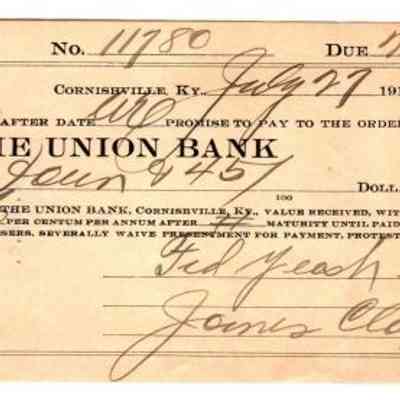 No. 11780 DUE
CORNISHVILLE, KY., July 27 191
AFTER DATE we PROMISE TO PAY TO THE ORDER
HE UNION BANK
45/100 DOLL
THE UNION BANK, CORNISHVILLE, KY., VALUE RECEIVED, WIT
PER CENTUM PER ANNUM AFTER MATURITY UNTIL PAID
SERS, SEVERALLY WAIVE PRESENTMENT FOR PAYMENT, PROTEST
Yeast
James Cla